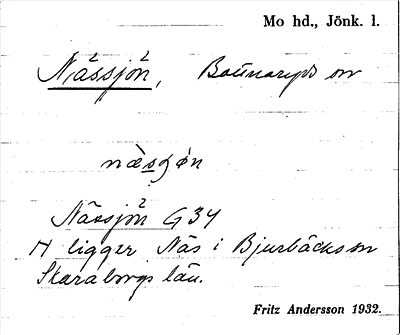 Mo hd., Jönk. l.
Nässjön, Bottnaryds sn
Nässjön G34
H ligger Näs i Bjurbäcks sn
Skaraborgs län.
Fritz Andersson 1932.